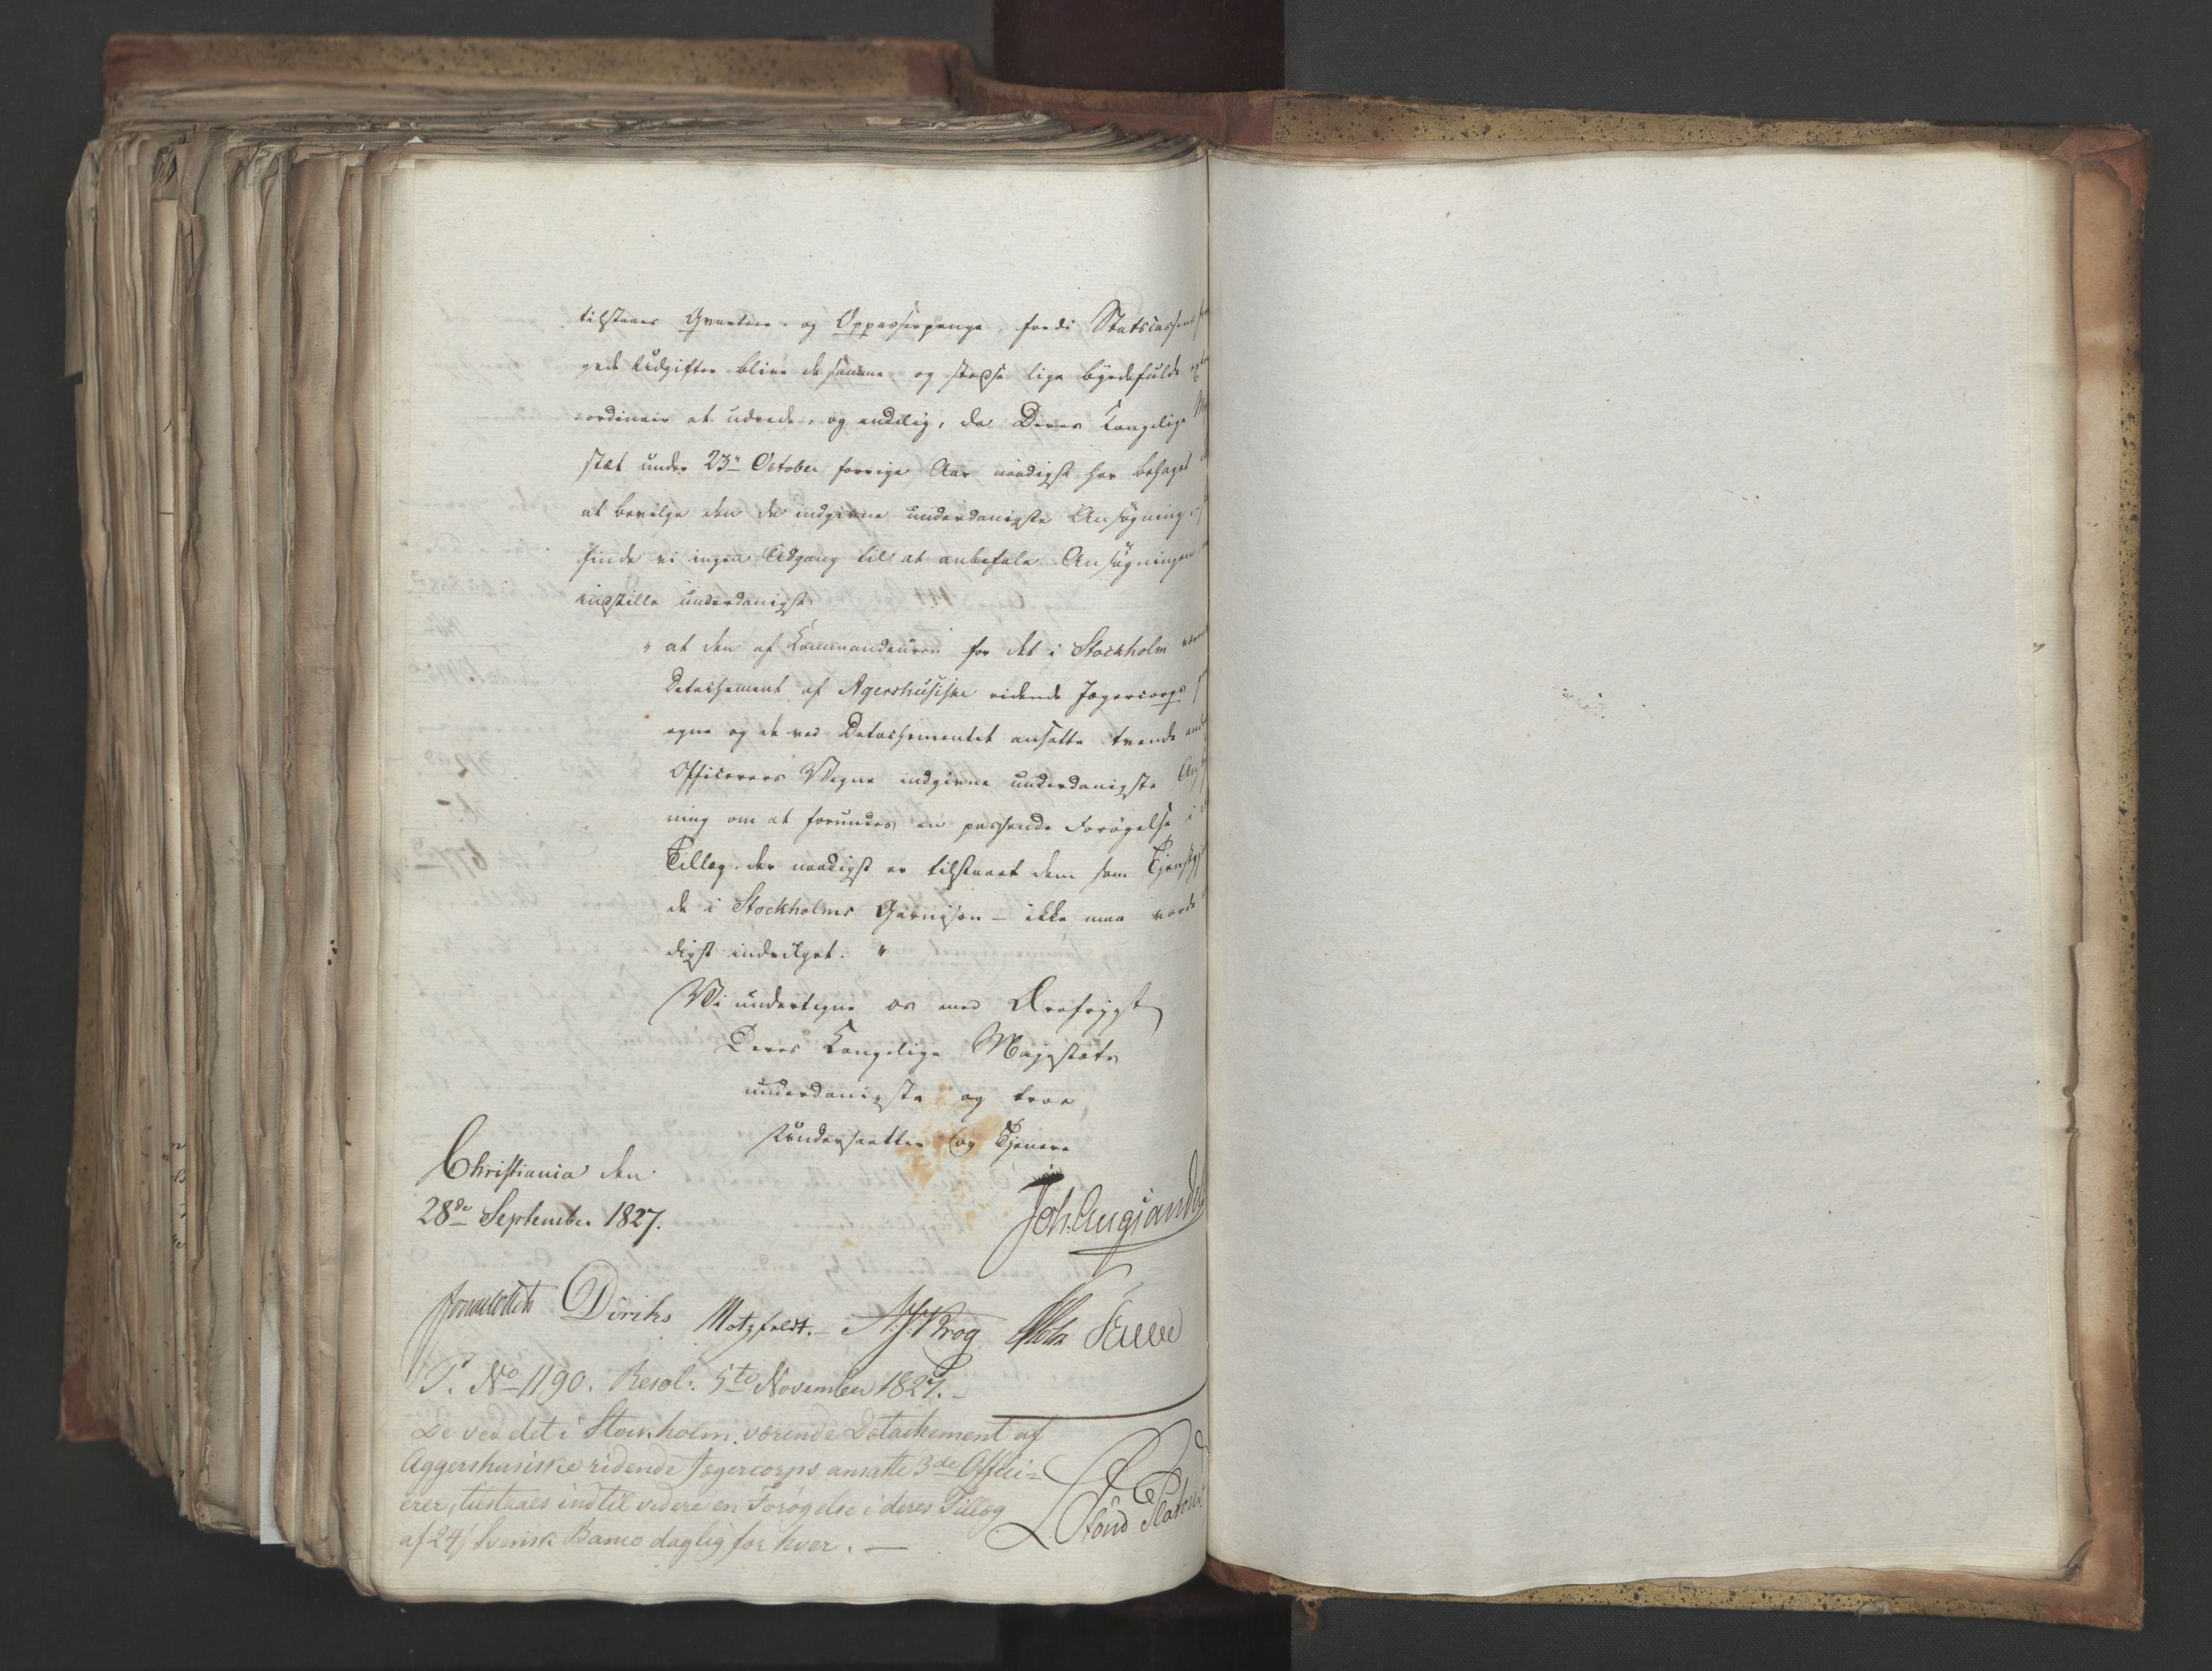 tilstaaes Qvarteer- og Oppasserpenge, fordi Statscassens
gede Udgifter blive de samme, og stedse lige byrdefulde
ordinair at udrede, og endelig, da Deres Kongelige
stæt under 23de October forrige Aar naadigst har behaget
at bevilge den da indgivne underdanigste Ansøgning
finde vi ingen Adgang til at anbefale Ansøgningen
indstille underdanigst:
" at den af Commandeuren for det i Stockholm
Detachement af Agershusiske ridende Jægercorps
egne og de ved Detachementet ansatte tvende
Officerers Vegne indgivne underdanigste
ning om at forundes en passende Forøgelse i
Tillæg, der naadigst er tilstaaet dem som
de i Stockholms Garnison – ikke maa vorde
digst indvilget. "
Vi undertegne os med Ærefrygt
Deres Kongelige Majestæts
underdanigste og troe
Undersaatter og Tjenere
Christiania den
28de September 1827.
Joh. Aug. Sandels
Sommerhielm Diriks Motzfeldt. H. J. Krog Holst Fauye
P. No 1190. Resol: 5te November 1827. –
De ved det i Stockholm værende Detachement af
Aggershusiske ridende Jægercorps ansatte 3de Offici=
erer, tilstaaes indtil videre en Forøgelse i deres Tillæg
af 24 s Svensk Banco daglig for hver. —
Stoud Platou